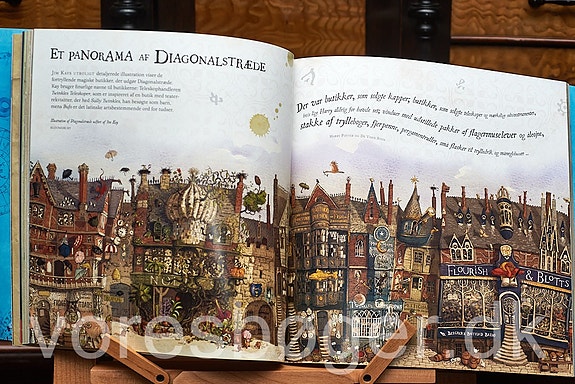 ET PANORAMA AF DIAGONALSTRÆDE
JIM KAYS UTROLIGT detaljerede illustration viser de
fortryllende magiske butikker, der udgør Diagonalstræde.
Kay bruger finurlige navne til butikkerne: Teleskophandleren
Twinkles Telescopes, som er inspireret af en butik med teater-
rekvisitter, der hed Sally Twinkles, han besøgte som barn,
mens Bufo er det latinske artsbestemmende ord for tudser.
Illustration af Diagonalstræde udført af Jim Kay
Der var butikker, som solgte kapper; butikker, som solgte teleskoper og mærkelige sølvinstrumenter,
Harry aldrig før havde set; vinduer med udstillede pakker af flagermuselever og åleøjne,
stakke af trylleboger, fjerpenne, pergamentruller, små flasker til trylledrik, og måneglober ...
FLOURISH & BLOTTS
voresboger.dk